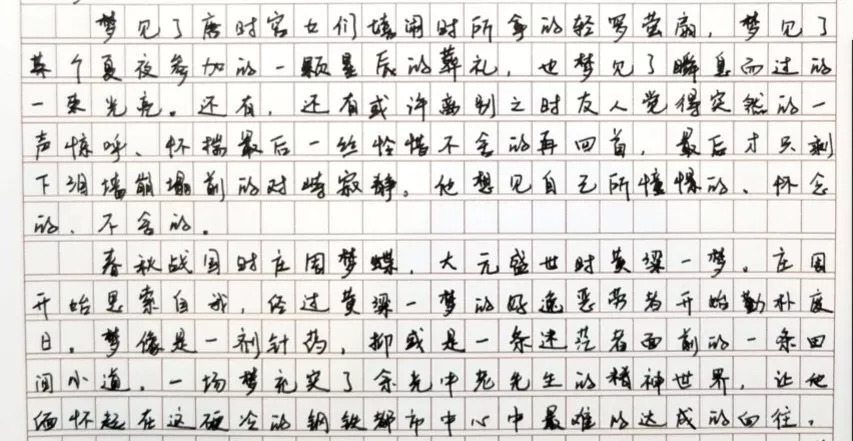 梦见了唐时宫女们嬉闹时所拿的轻罗萤扇,梦见了
某个夏夜参加的一颗星辰的葬礼,也梦见了瞬息而过的
一束光亮。还有,还有或许离别之时友人觉得突然的一
声惊呼、怀揣最后一丝怜惜不舍的再回首,最后才只剩
下泪墙崩塌前的对峙寂静。他想见自己所憧憬的、怀念
的、不舍的。
春秋战国时庄周梦蝶,大元盛世时黄粱一梦。庄周
开始思索自我,经过黄粱一梦的好逸恶劳者开始勤朴度
日。梦像是一剂针药,抑或是一条迷茫者面前的一条田
间小道。一场梦充实了余光中老先生的精神世界,让他
缅怀起在这硬冷的钢铁都市中心中最难以达成的向往。